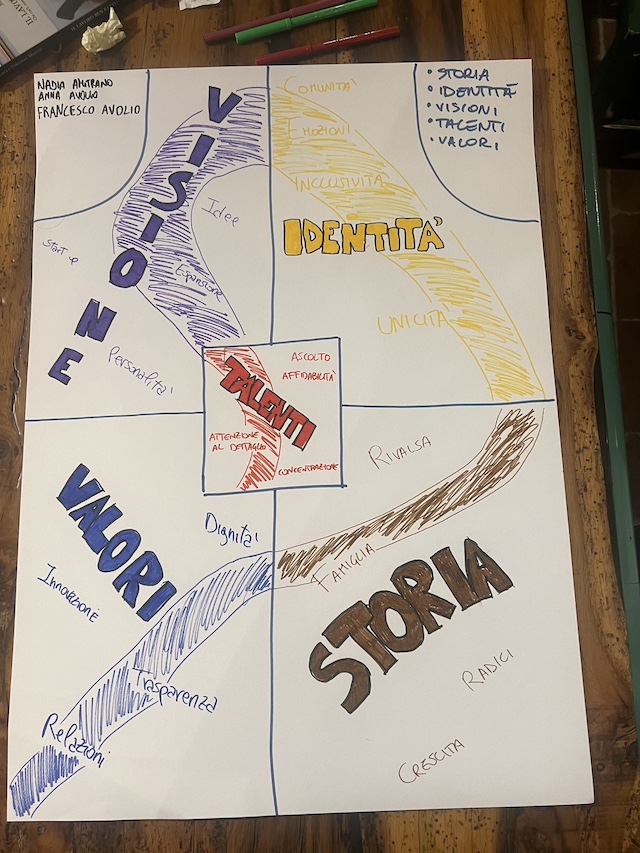 NADIA AMITRANO
ANNA AVOLIO
FRANCESCO AVOLIO
• STORIA
• IDENTITÀ
• VISIONI
• TALENTI
• VALORI
VISIONE
Idee
Start up
Espansione
Personalità
COMUNITA'
EMOZIONI
INCLUSIVITA'
IDENTITA'
UNICITA'
TALENTI
ASCOLTO
AFFIDABILITA'
ATTENZIONE
AL DETTAGLIO
CONCENTRAZIONE
VALORI
Dignita'
Innovazione
Trasparenza
Relazioni
RIVALSA
FAMIGLIA
STORIA
RADICI
CRESCITA